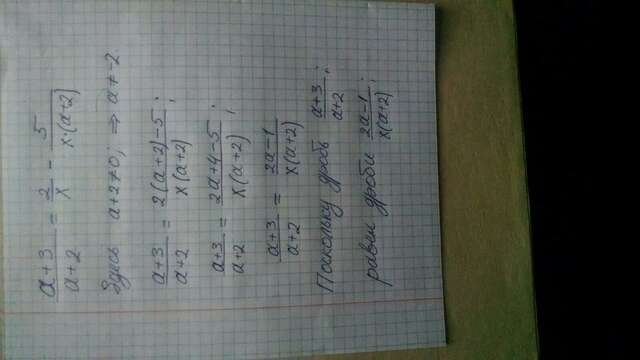 (a+3)/(a+2) = 2/x - 5/(x·(a+2))
Здесь a+2≠0; ⇒ a≠-2
(a+3)/(a+2) = (2(a+2)-5)/(x(a+2));
(a+3)/(a+2) = (2a+4-5)/(x(a+2));
(a+3)/(a+2) = (2a-1)/(x(a+2))
Поскольку дробь (a+3)/(a+2);
равна дроби (2a-1)/(x(a+2));